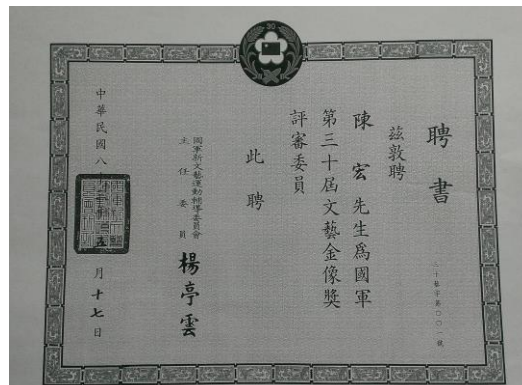 聘書
茲敦聘
陳宏先生為國軍
第三十屆文藝金像獎
評審委員
此聘
國軍新文藝運動輔導委員會
主任委員
楊亭雲
中華民國八十
五
月十七日
30